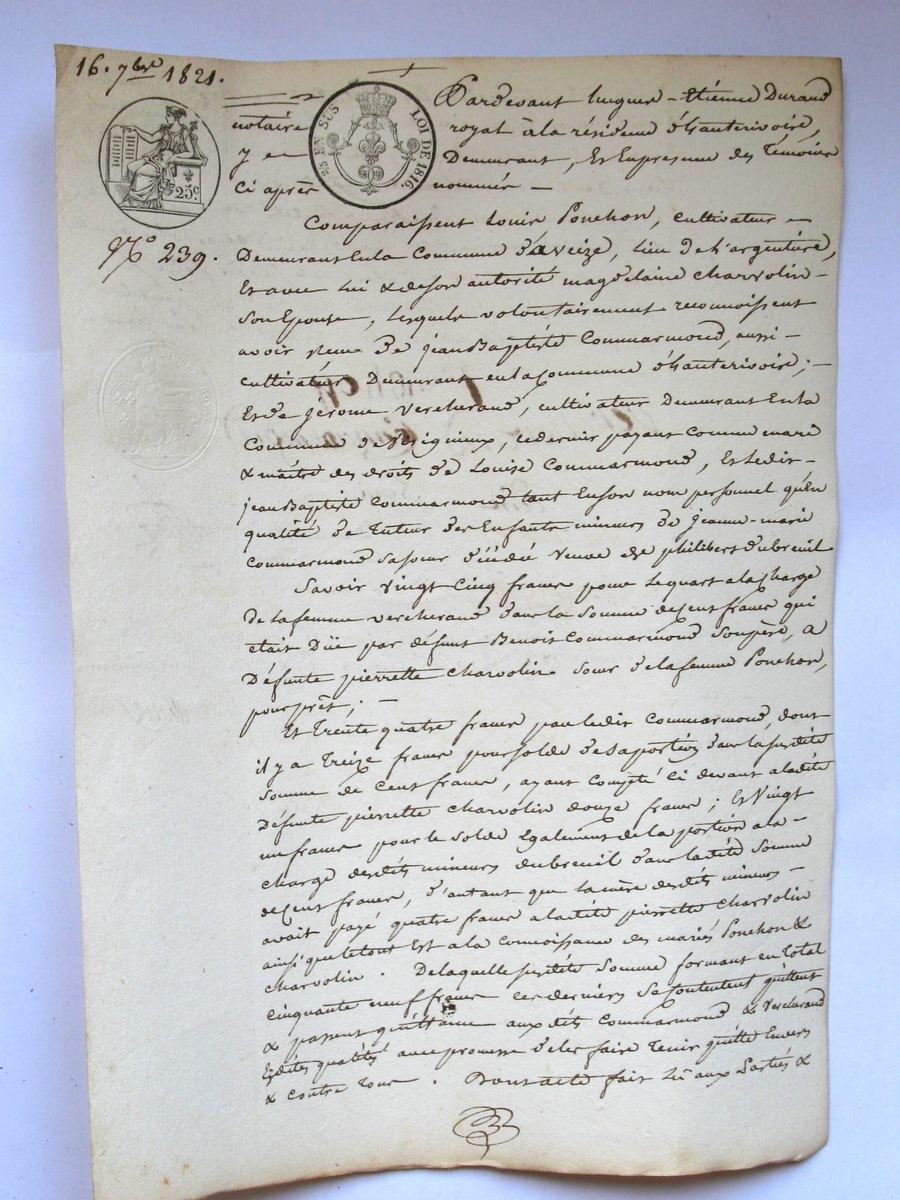 16. 7bre 1821.
Pardevant hugues-Etienne Durand
notaire royal à la résidence d'hauterivoire,
y en Demeurant, Et En presence des Témoins
Ci après nommés —
25 EN SUS LOI DE 1816.
25 c.
N.º 239.
Comparaissent Louis Ponchon, cultivateur
Demeurant En la Commune d'aveize, lieu de l'argentière,
Et avec lui & de son autorité magdelaine Charvolin
Son Epouse, lesquels volontairement reconnoissent
avoir reçu de jean Baptiste Commarmond, aussi
cultivateur Demeurant en la Commune d'hauterivoire; —
Et de jérome Vercherand, cultivateur Demeurant En la
Commune de, ce dernier payant comme mari
& maître des droits de Louise Commarmond, Et le dit
jean Baptiste Commarmond tant En son nom personnel qu'En
qualité de Tuteur des Enfants mineurs de jeanne-marie
Commarmond sa soeur décédée Veuve de philibert dubreuil
Savoir Vingt Cinq francs pour le quart a la charge
De la femme vercherand dans la Somme de Cent francs qui
etait Düe par défunt Benoit Commarmond Son père, a
Défunte pierrette Charvolin Soeur de la femme Ponchon,
pour prêt; —
Et Trente quatre francs par le dit Commarmond, dont
il y a Treize francs pour solde de sa portion dans la susdite
Somme de Cent francs, ayant Compté Ci devant a la dite
Défunte pierrette Charvolin douze francs; Et Vingt
un francs pour le solde Egalement de la portion a la
charge des dits mineurs dubreuil dans la dite Somme
de Cent francs, d'autant que la mère des dits mineurs
avait payé quatre francs a la dite pierrette Charvolin
ainsi que le tout Est a la connoissance des mariés Ponchon &
Charvolin. De laquelle susdite Somme formant en Total
cinquante neuf francs ces derniers se Contentent quittent
& passent quittance aux dits Commarmond & Vercherand
Esdites qualités avec promesse de les faire Tenir quitte Envers
& contre Tous. Dont acte fait Lû aux Parties &